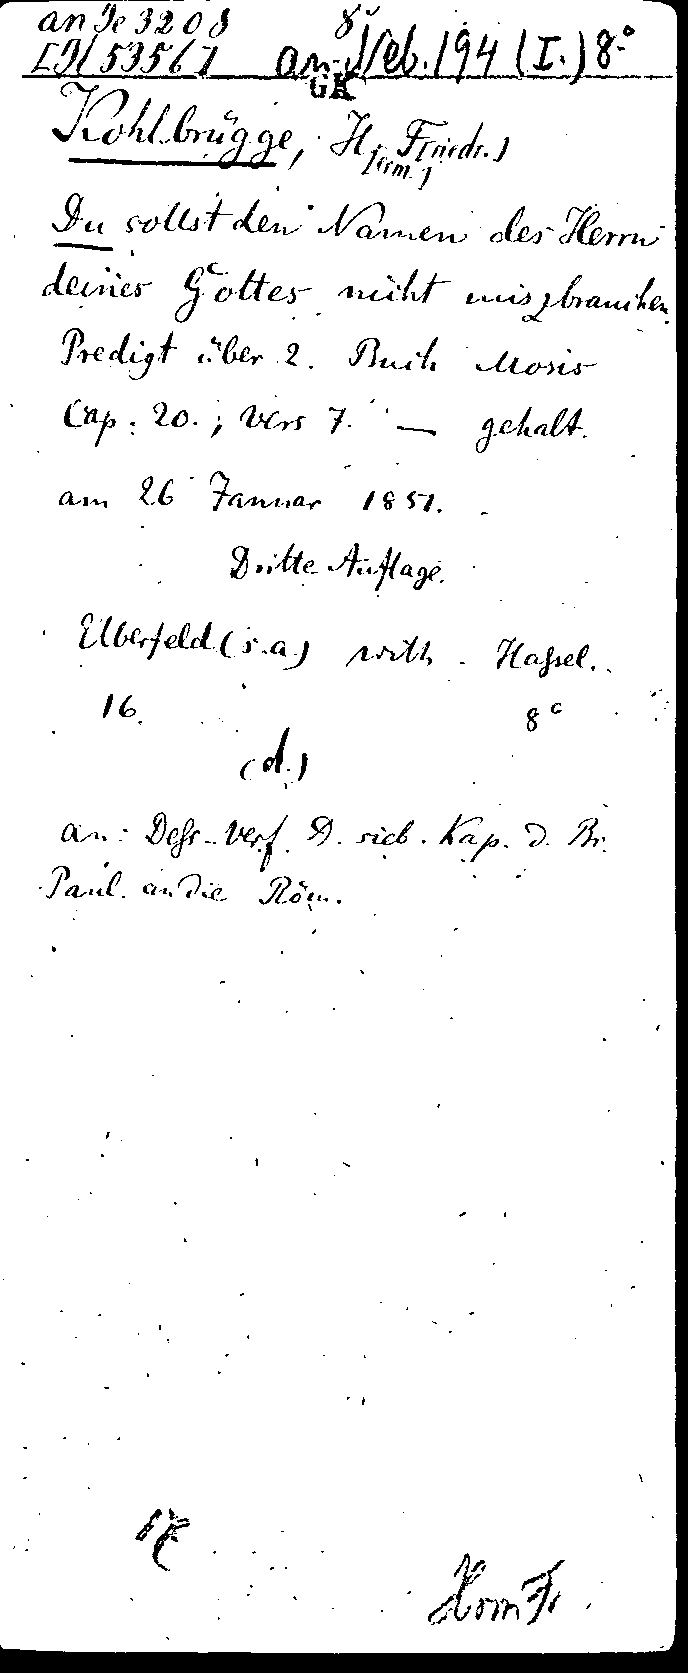 an Je 3208 8°
an Neb. 194 (I.) 8°
GK
Kohlbrügge, H(erm.) F(riedr.)
Du sollst den Namen des Herrn
deines Gottes nicht miszbrauchen.
Predigt über 2. Buch Mosis
Cap. 20., Vers 7. — gehalt.
am 26 Januar 1851.
Dritte Auflage.
Elberfeld (s.a.) Hassel.
16. 8°
(d.)
an: Dess. Verf. D. sieb. Kap. d. Br.
Paul. an die Röm.
Hrm Fr